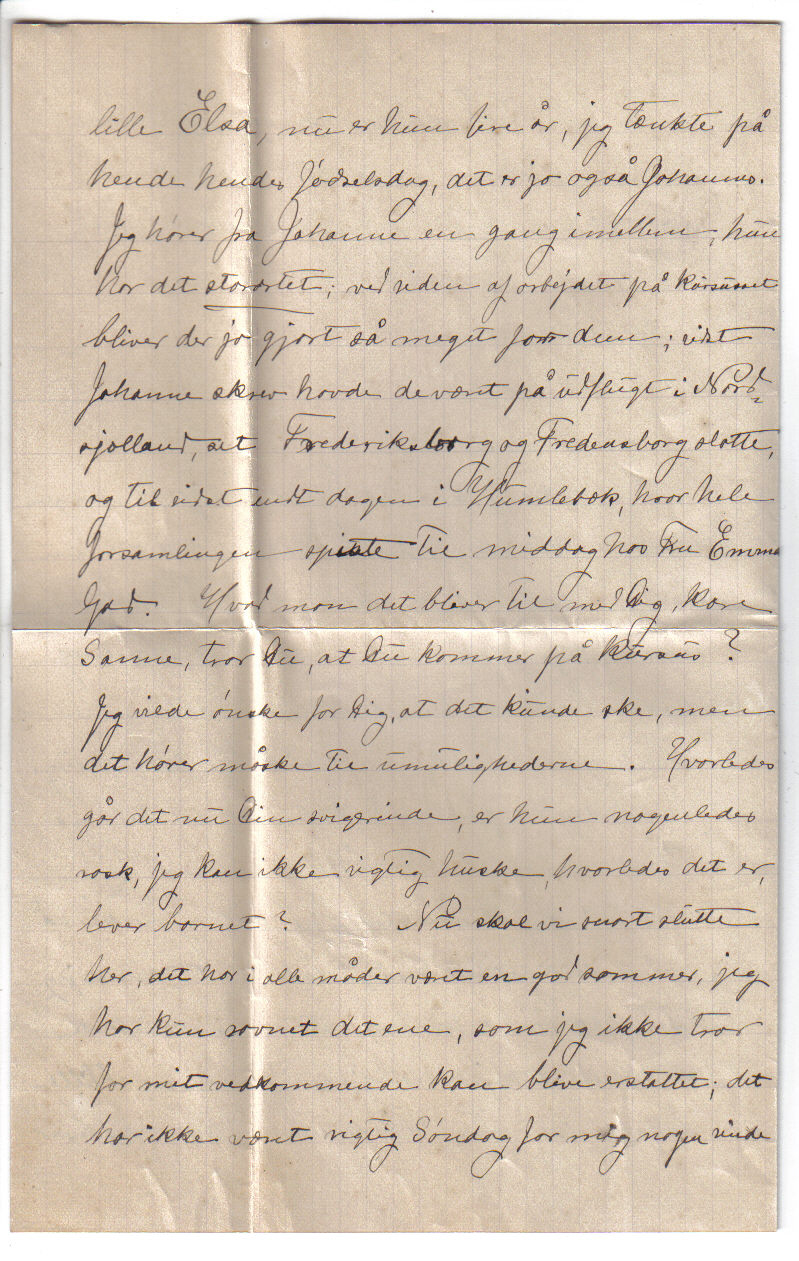 lille Elsa, nu er hun fire år, jeg tænkte på
hende hendes fødselsdag, det er jo også Johannes.
Jeg hører fra Johanne en gang imellem, hun
har det storartet; ved siden af arbejdet på kursuset
bliver der jo gjort så meget for dem; sidst
Johanne skrev havde de været på udflugt i Nord=
sjælland, set Frederiksborg og Fredensborg slotte,
og til sidst endt dagen i Humlebæk, hvor hele
forsamlingen spiste til middag hos Fru Emma
Gad. Hvad mon det bliver til med Dig, kære
Sanne, tror Du, at Du kommer på kursus?
Jeg vilde ønske for Dig, at det kunde ske, men
det hører måske til umulighederne. Hvorledes
går det nu Din svigerinde, er hun nogenledes
rask, jeg kan ikke rigtig huske, hvorledes det er,
lever barnet? Nu skal vi snart slutte
her, det har i alle måder været en god sommer, jeg
har kun savnet det ene, som jeg ikke tror
for mit vedkommende kan blive erstattet; det
har ikke været rigtig Søndag for mig nogen sinde